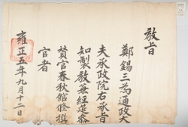 教旨
鄭錫三為通政大
夫承政院右承旨
知製教無經筵參
賛官春秋館修撰
官者
雍正五年九月十二日